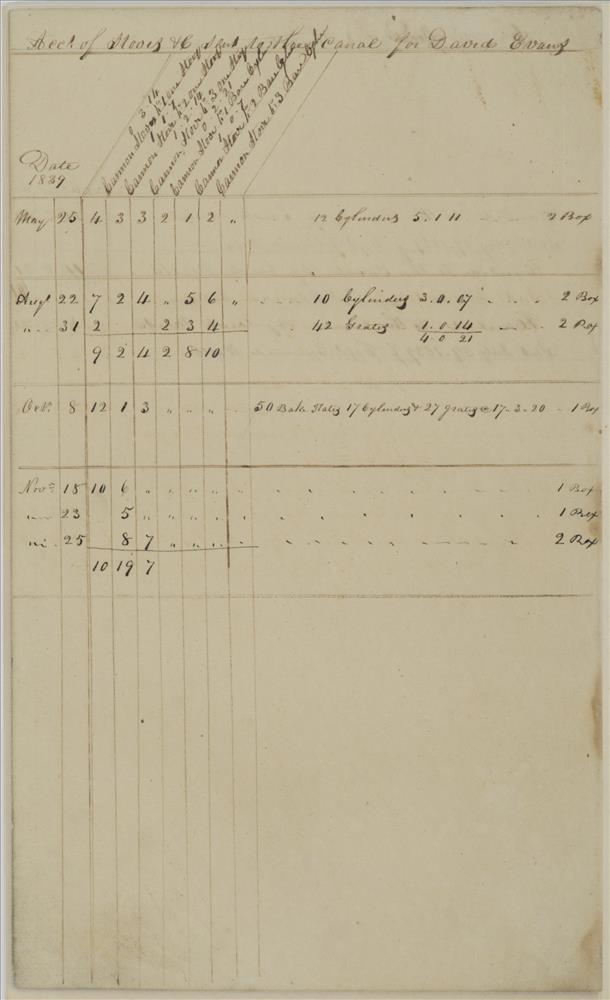 Acct. of Stoves &C Sent to the canal for David Evans
3 14
Cannon Stove No 1 one Stove
1 1
Cannon Stove No 2 one Stove
1 2 14
Cannon Stove No 3 one Stove
0 2 21
Cannon Stove No 1 Bare Cylin
Cannon Stove No 2 Bare Cylin
Cannon Stove No 3 Bare Cylin
Date
1839
May 25 4 3 3 2 1 2 " 12 Cylinders 5.1 11 2 Box
Augt 22 7 2 4 " 5 6 " 10 Cylinders 3.0.07 2 Box
" 31 2 2 3 4 42 Grates 1.0 14 2 Box
4 0 21
9 2 4 2 8 10
Octr. 8 12 1 3 " " " 50 Bake Plates 17 Cylinders & 27 grates @ 17-3-20 1 Box
Novr 18 10 6 " " " " " 1 Box
" 23 5 " " " " 1 Box
" 25 8 7 " " " 2 Box
10 19 7